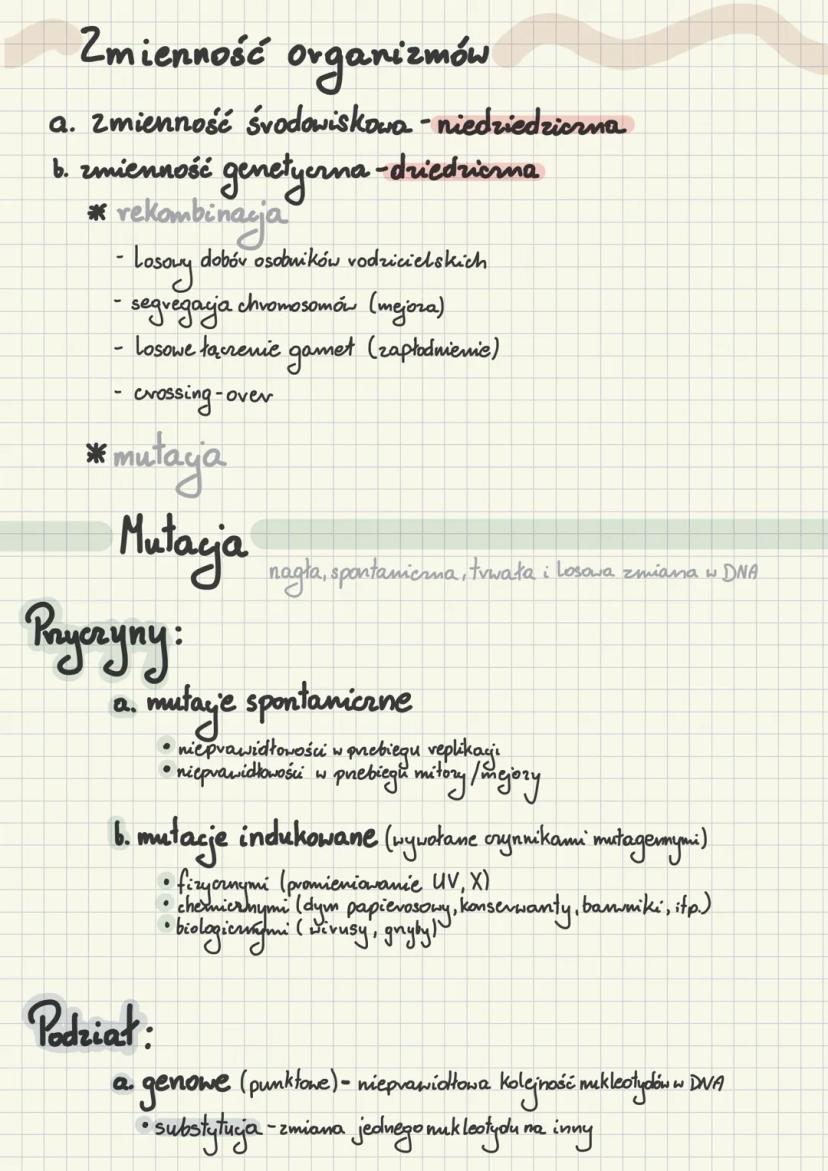 Zmienność organizmów
a. zmienność środowiskowa - niedziedziczna
b. zmienność genetyczna - dziedziczna
* rekombinacja
- losowy dobór osobników rodzicielskich
- segregacja chromosomów (mejoza)
- losowe łączenie gamet (zapłodnienie)
- crossing-over
* mutacja
Mutacja
nagła, spontaniczna, trwała i losowa zmiana w DNA
Przyczyny:
a. mutacje spontaniczne
• nieprawidłowości w przebiegu replikacji
• nieprawidłowości w przebiegu mitozy/mejozy
b. mutacje indukowane (wywołane czynnikami mutagennymi)
• fizycznymi (promieniowanie UV, X)
• chemicznymi (dym papierosowy, konserwanty, barwniki, itp.)
• biologicznymi (wirusy, grzyby)
Podział:
a. genowe (punktowe) - nieprawidłowa kolejność nukleotydów w DNA
• substytucja - zmiana jednego nukleotydu na inny